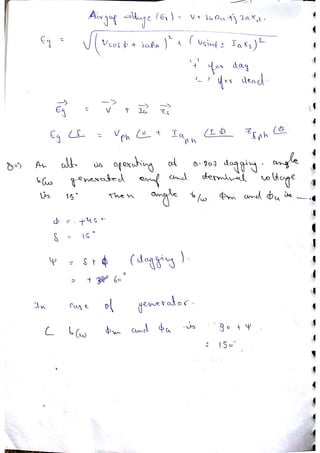 Airgap voltage (Er) = V + IaRa + j Ia Xs.
Eg = √(Vcosϕ + IaRa)² + (Vsinϕ ± IaXs)²
'+' for lag
'-' for lead.
Eg = V + Ia Zs
Eg ∠δ = Vph ∠0 + Ia ph ∠±ϕ Zsph ∠θ
Q:-) An alt. is operating at 0.707 lagging. angle
b/w generated emf and terminal voltage
is 15° then angle b/w ϕm and ϕa is —
ϕ = +45°
δ = 15°
Ψ = δ + ϕ (lagging).
= + 60°
In case of generator.
∠ b/w ϕm and ϕa is 90 + Ψ
= 150°